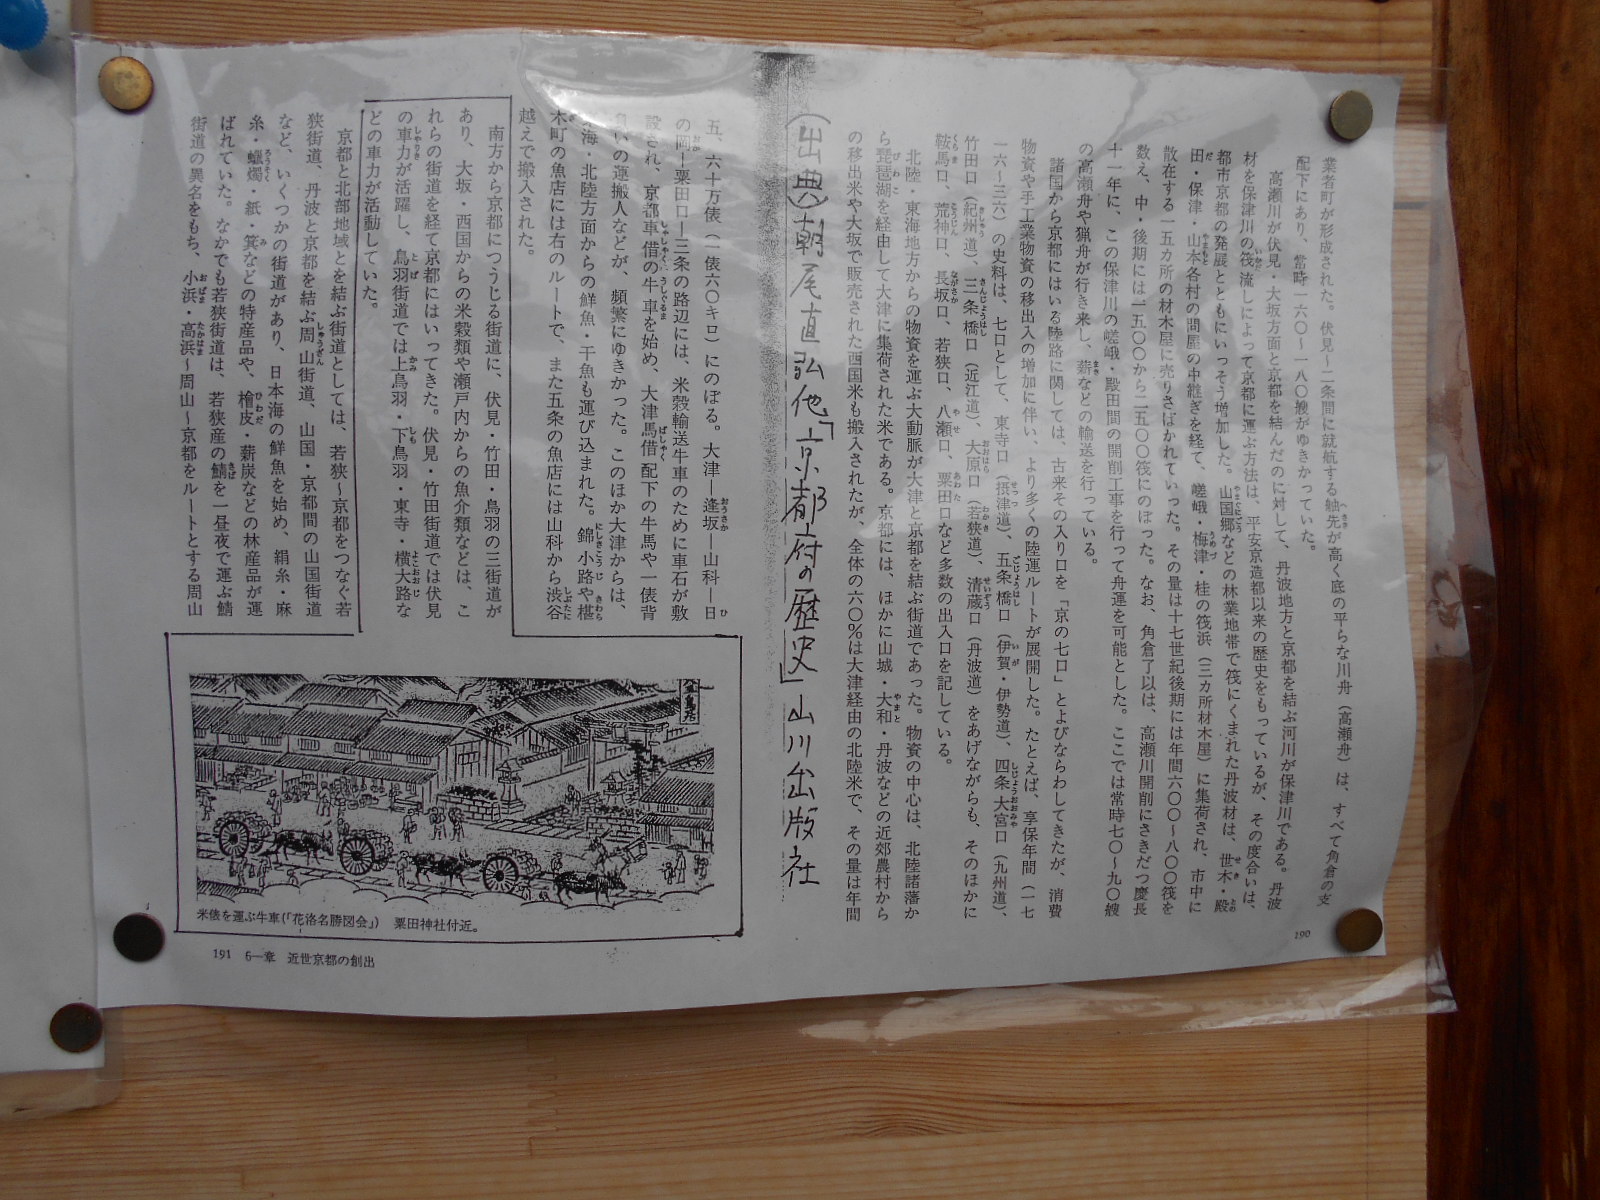 業者町が形成された。伏見～二条間に就航する舳先が高く底の平らな川舟（高瀬舟）は、すべて角倉の支
配下にあり、当時一六〇～一八〇艘がゆきかっていた。
高瀬川が伏見・大坂方面と京都を結んだのに対して、丹波地方と京都を結ぶ河川が保津川である。丹波
材を保津川の筏流しによって京都に運ぶ方法は、平安京造都以来の歴史をもっているが、その度合いは、
都市京都の発展とともにいっそう増加した。山国郷などの林業地帯で筏にくまれた丹波材は、世木・殿
田・保津・山本各村の問屋の中継ぎを経て、嵯峨・梅津・桂の筏浜（三カ所材木屋）に集荷され、市中に
散在する一五カ所の材木屋に売りさばかれていった。その量は十七世紀後期には年間六〇〇～八〇〇筏を
数え、中・後期には一五〇〇から二五〇〇筏にのぼった。なお、角倉了以は、高瀬川開削にさきだつ慶長
十一年に、この保津川の嵯峨・殿田間の開削工事を行って舟運を可能とした。ここでは常時七〇～九〇艘
の高瀬舟や猟舟が行き来し、薪などの輸送を行っている。
諸国から京都にはいる陸路に関しては、古来その入り口を「京の七口」とよびならわしてきたが、消費
物資や手工業物資の移出入の増加に伴い、より多くの陸運ルートが展開した。たとえば、享保年間（一七
一六～三六）の史料は、七口として、東寺口（摂津道）、五条橋口（伊賀・伊勢道）、四条大宮口（九州道）、
竹田口（紀州道）、三条橋口（近江道）、大原口（若狭道）、清蔵口（丹波道）をあげながらも、そのほかに
鞍馬口、荒神口、長坂口、若狭口、八瀬口、粟田口など多数の出入口を記している。
北陸・東海地方からの物資を運ぶ大動脈が大津と京都を結ぶ街道であった。物資の中心は、北陸諸藩か
ら琵琶湖を経由して大津に集荷された米である。京都には、ほかに山城・大和・丹波などの近郊農村から
の移出米や大坂で販売された西国米も搬入されたが、全体の六〇％は大津経由の北陸米で、その量は年間
190
（出典）朝尾直弘他「京都府の歴史」山川出版社
五、六十万俵（一俵六〇キロ）にのぼる。大津―逢坂―山科―日
の岡―粟田口―三条の路辺には、米穀輸送牛車のために車石が敷
設され、京都車借の牛車を始め、大津馬借配下の牛馬や一俵背
負いの運搬人などが、頻繁にゆきかった。このほか大津からは、
東海・北陸方面からの鮮魚・干魚も運び込まれた。錦小路や椹
木町の魚店には右のルートで、また五条の魚店には山科から渋谷
越えで搬入された。
南方から京都につうじる街道に、伏見・竹田・鳥羽の三街道が
あり、大坂・西国からの米穀類や瀬戸内からの魚介類などは、こ
れらの街道を経て京都にはいってきた。伏見・竹田街道では伏見
の車力が活躍し、鳥羽街道では上鳥羽・下鳥羽・東寺・横大路な
どの車力が活動していた。
京都と北部地域とを結ぶ街道としては、若狭～京都をつなぐ若
狭街道、丹波と京都を結ぶ周山街道、山国・京都間の山国街道
など、いくつかの街道があり、日本海の鮮魚を始め、絹糸・麻
糸・蠟燭・紙・箕などの特産品や、檜皮・薪炭などの林産品が運
ばれていた。なかでも若狭街道は、若狭産の鯖を一昼夜で運ぶ鯖
街道の異名をもち、小浜・高浜～周山～京都をルートとする周山
米俵を運ぶ牛車（「花洛名勝図会」） 粟田神社付近。
191 6―章 近世京都の創出